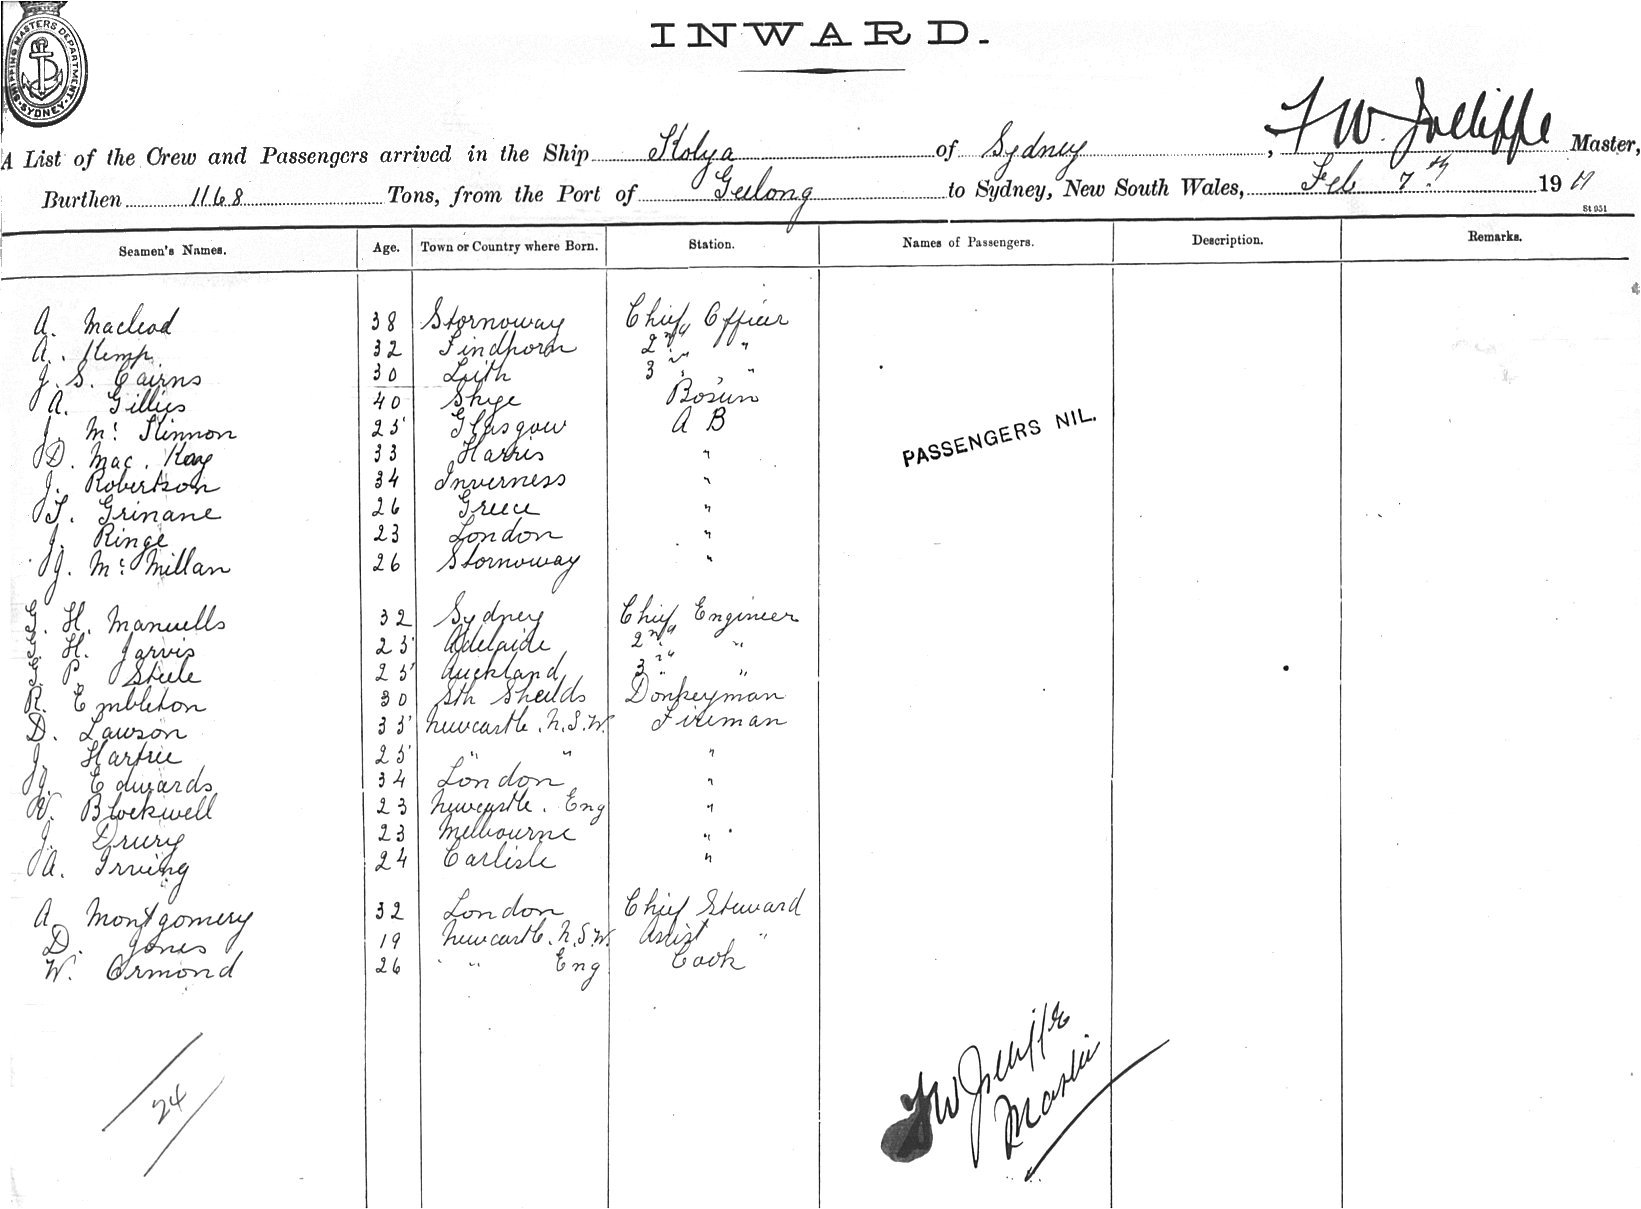 SHIPPING MASTERS DEPARTMENT. SYDNEY.
INWARD.
A List of the Crew and Passengers arrived in the Ship Kolya of Sydney, F W. Jolliffe Master,
Burthen 1168 Tons, from the Port of Geelong to Sydney, New South Wales, Feb 7th 19
St 951
Seamen's Names. Age. Town or Country where Born. Station. Names of Passengers. Description. Remarks.
A. Macleod 38 Stornoway Chief Officer
A. Kemp 32 Findhorn 2nd "
J. S. Cairns 30 Leith 3rd "
A. Gillies 40 Skye Bosun
J. Mc Kinnon 25 Glasgow A B
D. Mac. Kay 33 Harris "
J. Robertson 34 Inverness "
T. Grinane 26 Greece "
J. Ringe 23 London "
J. Mc Millan 26 Stornoway "
PASSENGERS NIL.
H. Manuells 32 Sydney Chief Engineer
H. Jarvis 25 Adelaide 2nd "
P. Steele 25 Auckland 3rd "
R. Embleton 30 Sth Sheilds Donkeyman
D. Lawson 35 Newcastle. N.S.W. Fireman
J. Hartree 25 " " "
J. Edwards 34 London "
W. Blockwell 23 Newcastle. Eng "
J. Drury 23 Melbourne "
A. Irving 24 Carlisle "
A. Montgomery 32 London Chief Steward
D. Jones 19 Newcastle. N.S.W. Assist "
W. Ormond 26 " " Eng Cook
24
F W Jolliffe
Master